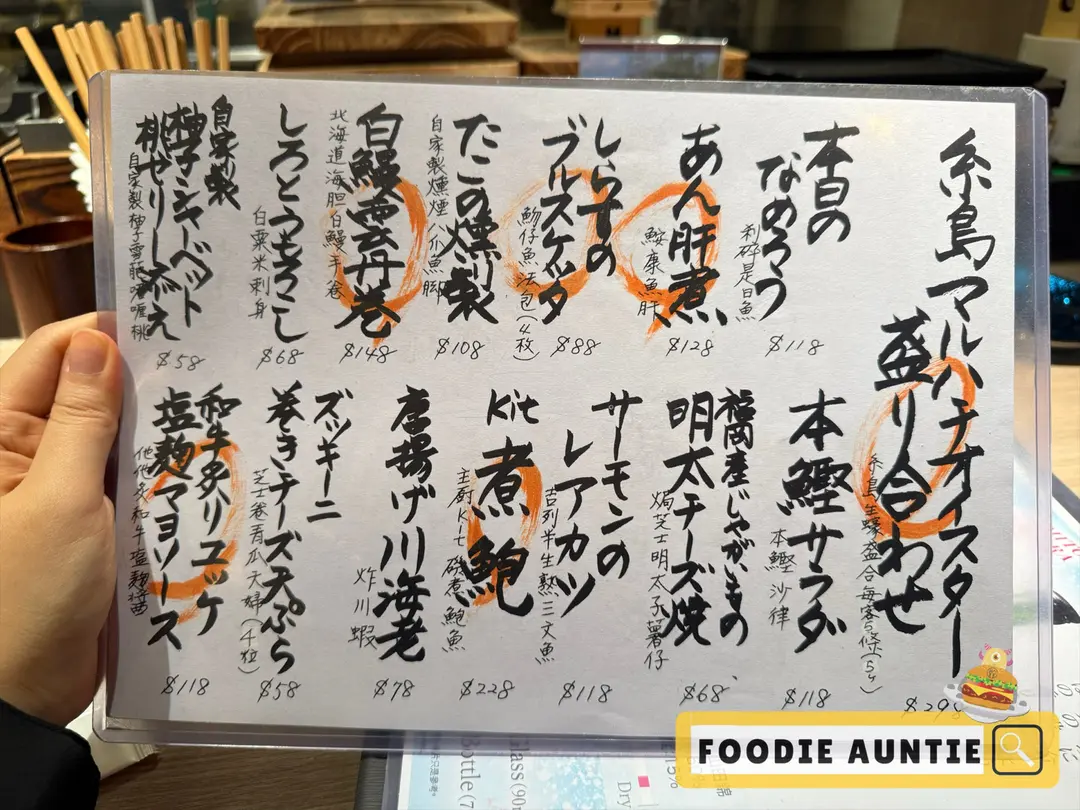 糸島マルハチオイスター
盛り合わせ
糸島生蠔盛合
$298
本日の
なめろう
剁碎是日魚
$118
あん肝煮
鮟康魚肝
$128
しらすの
ブルスケッタ
魩仔魚法包(4枚)
$88
たこの燻製
自家製燻煙八爪魚腳
$108
白鰻雲丹巻
北海道海胆白鰻手卷
$148
しろとうもろこし
白粟米刺身
$68
自家製
柚子シャーベット
桃ゼリー添え
自家製柚子雪葩啫喱桃
$58
本鰹サラダ
本鰹沙律
$118
福岡産じゃがいもの
明太チーズ焼
焗芝士明太子薯仔
$68
サーモンの
レアカツ
吉列半生熟三文魚
$118
Kit
煮鮑
主厨Kit 磯煮鮑魚
$228
唐揚げ川海老
炸川蝦
$78
ズッキーニ
巻きチーズ天ぷら
芝士卷青瓜天婦(4粒)
$58
和牛炙りユッケ
塩麹マヨソース
他他炙和牛塩麹醤
$118
FOODIE AUNTIE